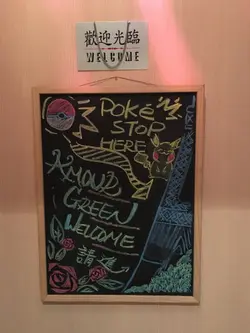 歡迎光臨
WELCOME
POKÉ
STOP
HERE
GREEN
WELCOME
請進